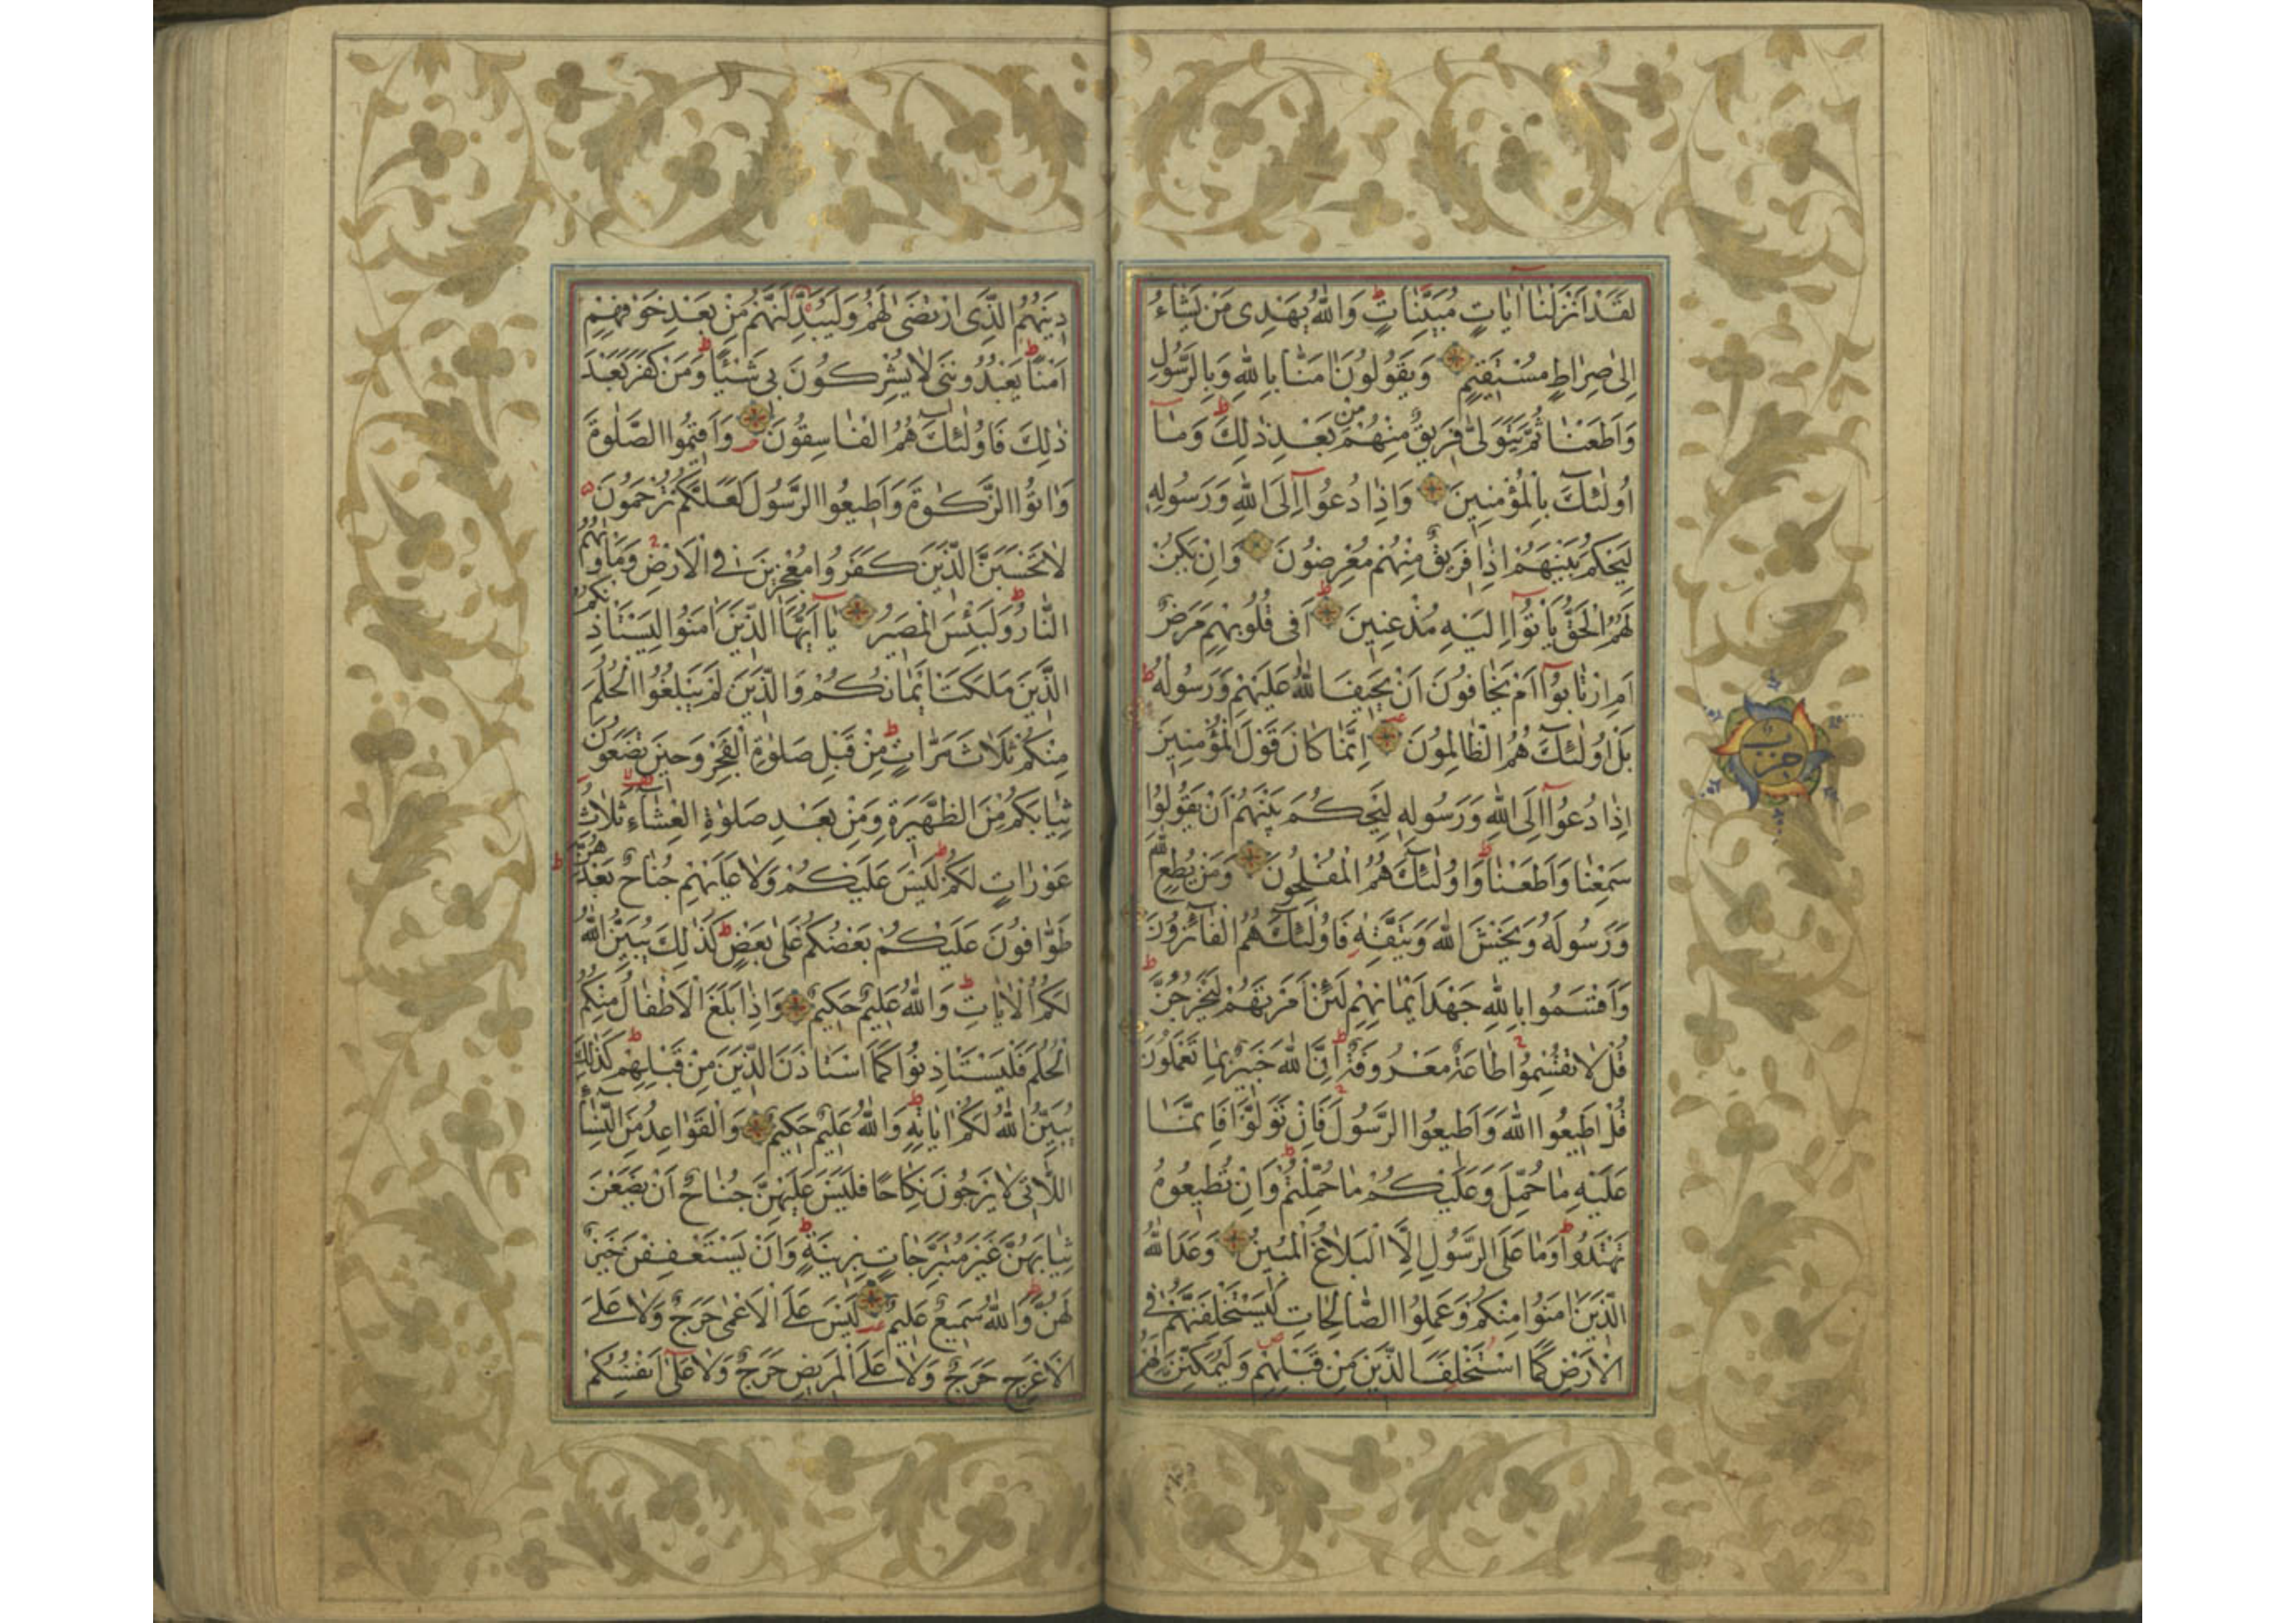 لَقَدْ اَنْزَلْنَا اٰيَاتٍ مُبَيِّنَاتٍ وَاللّٰهُ يَهْدِى مَنْ يَشَاءُ
اِلٰى صِرَاطٍ مُسْتَقِيمٍ وَيَقُولُونَ اٰمَنَّا بِاللّٰهِ وَبِالرَّسُولِ
وَاَطَعْنَا ثُمَّ يَتَوَلّٰى فَرِيقٌ مِنْهُمْ مِنْ بَعْدِ ذٰلِكَ وَمَا
اُولٰئِكَ بِالْمُؤْمِنِينَ وَاِذَا دُعُوا اِلَى اللّٰهِ وَرَسُولِهِ
لِيَحْكُمَ بَيْنَهُمْ اِذَا فَرِيقٌ مِنْهُمْ مُعْرِضُونَ وَاِنْ يَكُنْ
لَهُمُ الْحَقُّ يَاْتُوا اِلَيْهِ مُذْعِنِينَ اَفِى قُلُوبِهِمْ مَرَضٌ
اَمِ ارْتَابُوا اَمْ يَخَافُونَ اَنْ يَحِيفَ اللّٰهُ عَلَيْهِمْ وَرَسُولُهُ
بَلْ اُولٰئِكَ هُمُ الظَّالِمُونَ اِنَّمَا كَانَ قَوْلَ الْمُؤْمِنِينَ
اِذَا دُعُوا اِلَى اللّٰهِ وَرَسُولِهِ لِيَحْكُمَ بَيْنَهُمْ اَنْ يَقُولُوا
سَمِعْنَا وَاَطَعْنَا وَاُولٰئِكَ هُمُ الْمُفْلِحُونَ وَمَنْ يُطِعِ اللّٰهَ
وَرَسُولَهُ وَيَخْشَ اللّٰهَ وَيَتَّقْهِ فَاُولٰئِكَ هُمُ الْفَائِزُونَ
وَاَقْسَمُوا بِاللّٰهِ جَهْدَ اَيْمَانِهِمْ لَئِنْ اَمَرْتَهُمْ لَيَخْرُجُنَّ
قُلْ لَا تُقْسِمُوا طَاعَةٌ مَعْرُوفَةٌ اِنَّ اللّٰهَ خَبِيرٌ بِمَا تَعْمَلُونَ
قُلْ اَطِيعُوا اللّٰهَ وَاَطِيعُوا الرَّسُولَ فَاِنْ تَوَلَّوْا فَاِنَّمَا
عَلَيْهِ مَا حُمِّلَ وَعَلَيْكُمْ مَا حُمِّلْتُمْ وَاِنْ تُطِيعُوهُ
تَهْتَدُوا وَمَا عَلَى الرَّسُولِ اِلَّا الْبَلَاغُ الْمُبِينُ وَعَدَ اللّٰهُ
الَّذِينَ اٰمَنُوا مِنْكُمْ وَعَمِلُوا الصَّالِحَاتِ لَيَسْتَخْلِفَنَّهُمْ فِى
الْاَرْضِ كَمَا اسْتَخْلَفَ الَّذِينَ مِنْ قَبْلِهِمْ وَلَيُمَكِّنَنَّ لَهُمْ
حزب
دِينَهُمُ الَّذِى ارْتَضٰى لَهُمْ وَلَيُبَدِّلَنَّهُمْ مِنْ بَعْدِ خَوْفِهِمْ
اَمْنًا يَعْبُدُونَنِى لَا يُشْرِكُونَ بِى شَيْئًا وَمَنْ كَفَرَ بَعْدَ
ذٰلِكَ فَاُولٰئِكَ هُمُ الْفَاسِقُونَ وَاَقِيمُوا الصَّلٰوةَ
وَاٰتُوا الزَّكٰوةَ وَاَطِيعُوا الرَّسُولَ لَعَلَّكُمْ تُرْحَمُونَ
لَا تَحْسَبَنَّ الَّذِينَ كَفَرُوا مُعْجِزِينَ فِى الْاَرْضِ وَمَاْوٰيهُمُ
النَّارُ وَلَبِئْسَ الْمَصِيرُ يَا اَيُّهَا الَّذِينَ اٰمَنُوا لِيَسْتَاْذِنْكُمُ
الَّذِينَ مَلَكَتْ اَيْمَانُكُمْ وَالَّذِينَ لَمْ يَبْلُغُوا الْحُلُمَ
مِنْكُمْ ثَلَاثَ مَرَّاتٍ مِنْ قَبْلِ صَلٰوةِ الْفَجْرِ وَحِينَ تَضَعُونَ
ثِيَابَكُمْ مِنَ الظَّهِيرَةِ وَمِنْ بَعْدِ صَلٰوةِ الْعِشَاءِ ثَلَاثُ
عَوْرَاتٍ لَكُمْ لَيْسَ عَلَيْكُمْ وَلَا عَلَيْهِمْ جُنَاحٌ بَعْدَهُنَّ
طَوَّافُونَ عَلَيْكُمْ بَعْضُكُمْ عَلٰى بَعْضٍ كَذٰلِكَ يُبَيِّنُ اللّٰهُ
لَكُمُ الْاٰيَاتِ وَاللّٰهُ عَلِيمٌ حَكِيمٌ وَاِذَا بَلَغَ الْاَطْفَالُ مِنْكُمُ
الْحُلُمَ فَلْيَسْتَاْذِنُوا كَمَا اسْتَاْذَنَ الَّذِينَ مِنْ قَبْلِهِمْ كَذٰلِكَ
يُبَيِّنُ اللّٰهُ لَكُمْ اٰيَاتِهِ وَاللّٰهُ عَلِيمٌ حَكِيمٌ وَالْقَوَاعِدُ مِنَ النِّسَاءِ
اللَّاتِى لَا يَرْجُونَ نِكَاحًا فَلَيْسَ عَلَيْهِنَّ جُنَاحٌ اَنْ يَضَعْنَ
ثِيَابَهُنَّ غَيْرَ مُتَبَرِّجَاتٍ بِزِينَةٍ وَاَنْ يَسْتَعْفِفْنَ خَيْرٌ
لَهُنَّ وَاللّٰهُ سَمِيعٌ عَلِيمٌ لَيْسَ عَلَى الْاَعْمٰى حَرَجٌ وَلَا عَلَى
الْاَعْرَجِ حَرَجٌ وَلَا عَلَى الْمَرِيضِ حَرَجٌ وَلَا عَلٰى اَنْفُسِكُمْ